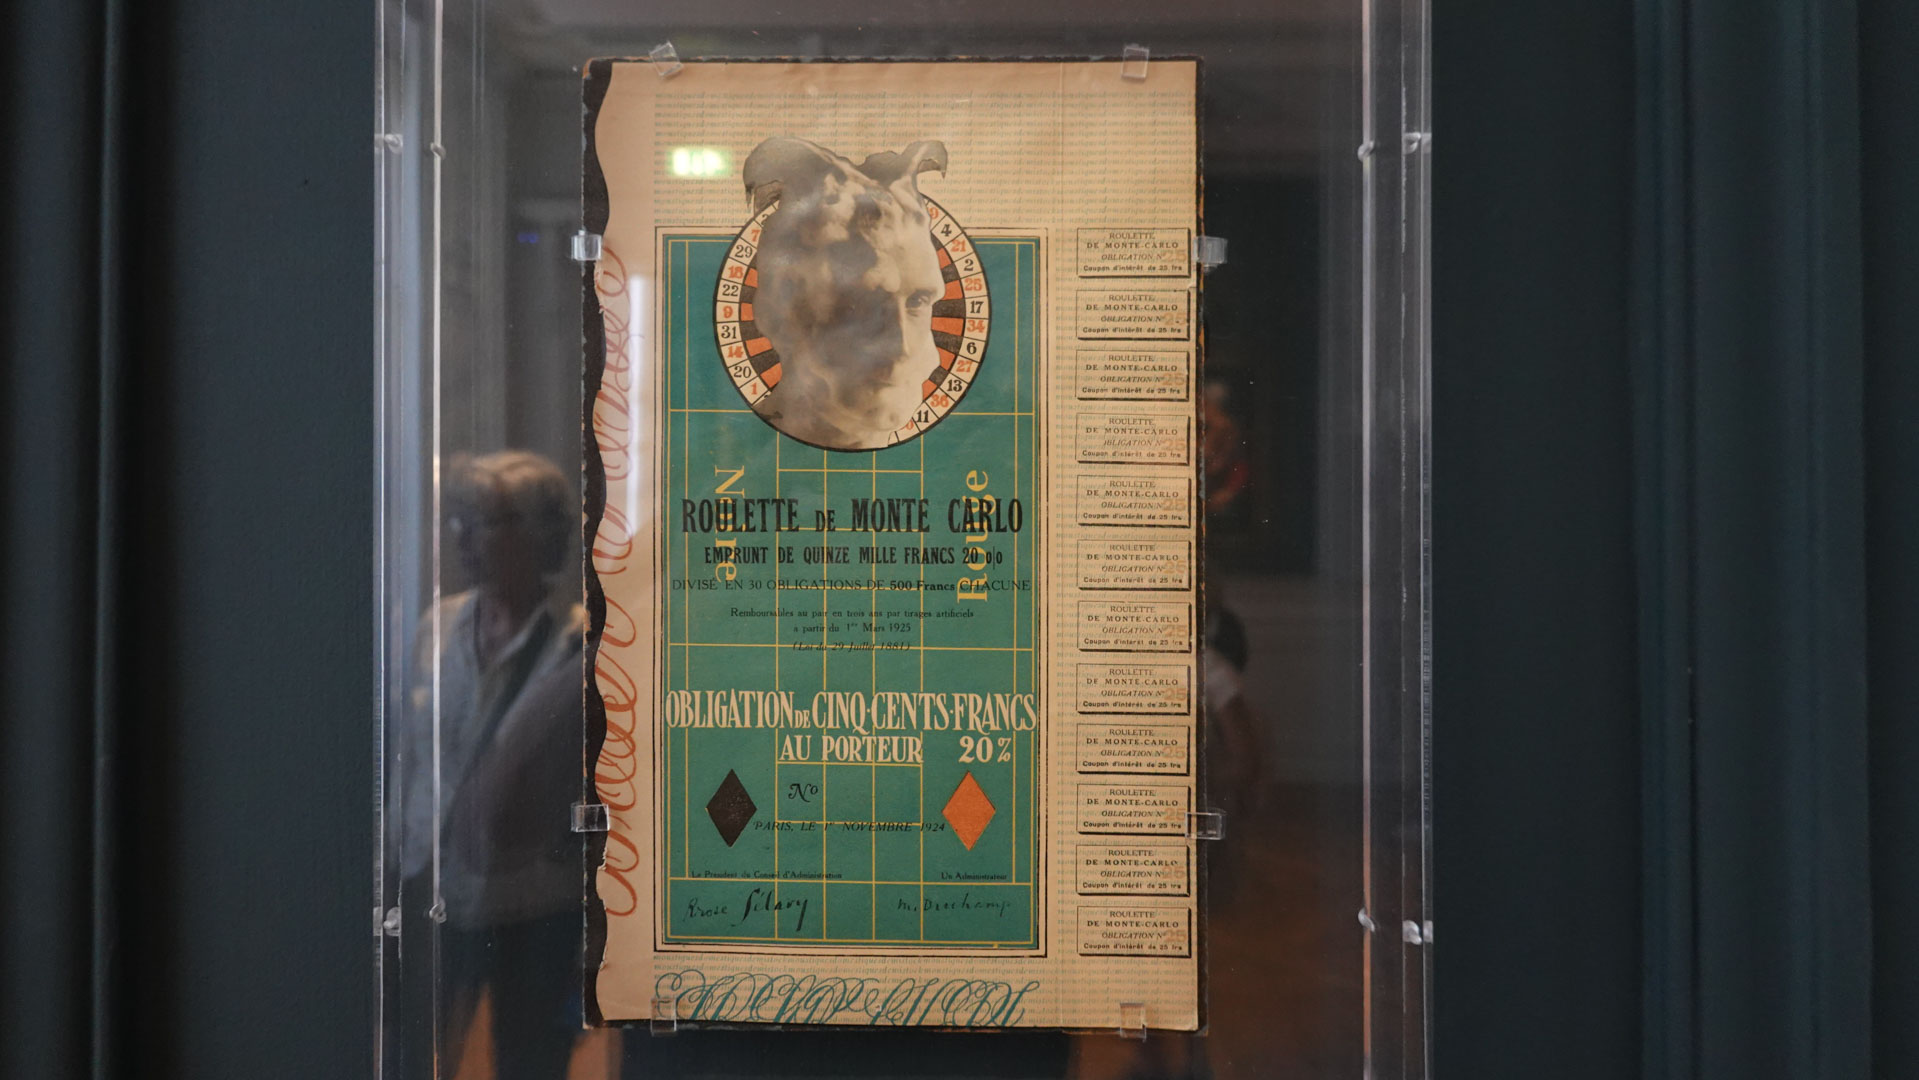 7
29
18
22
9
31
14
20
1
4
21
2
25
17
34
6
27
13
36
11
0
Noire
Rouge
ROULETTE DE MONTE CARLO
EMPRUNT DE QUINZE MILLE FRANCS 20 o/o
DIVISÉ EN 30 OBLIGATIONS DE 500 Francs CHACUNE
Remboursables au pair en trois ans par tirages artificiels
à partir du 1er Mars 1925
(Loi du 29 Juillet 1881)
OBLIGATION DE CINQ-CENTS-FRANCS
AU PORTEUR 20%
No
PARIS, LE 1er NOVEMBRE 1924
Le Président du Conseil d'Administration
Un Administrateur
Rrose Sélavy
M. Duchamp
ROULETTE
DE MONTE-CARLO
OBLIGATION N° 25
Coupon d'intérêt de 25 frs
ROULETTE
DE MONTE-CARLO
OBLIGATION N° 25
Coupon d'intérêt de 25 frs
ROULETTE
DE MONTE-CARLO
OBLIGATION N° 25
Coupon d'intérêt de 25 frs
ROULETTE
DE MONTE-CARLO
OBLIGATION N° 25
Coupon d'intérêt de 25 frs
ROULETTE
DE MONTE-CARLO
OBLIGATION N° 25
Coupon d'intérêt de 25 frs
ROULETTE
DE MONTE-CARLO
OBLIGATION N° 25
Coupon d'intérêt de 25 frs
ROULETTE
DE MONTE-CARLO
OBLIGATION N° 25
Coupon d'intérêt de 25 frs
ROULETTE
DE MONTE-CARLO
OBLIGATION N° 25
Coupon d'intérêt de 25 frs
ROULETTE
DE MONTE-CARLO
OBLIGATION N° 25
Coupon d'intérêt de 25 frs
ROULETTE
DE MONTE-CARLO
OBLIGATION N° 25
Coupon d'intérêt de 25 frs
ROULETTE
DE MONTE-CARLO
OBLIGATION N° 25
Coupon d'intérêt de 25 frs
ROULETTE
DE MONTE-CARLO
OBLIGATION N° 25
Coupon d'intérêt de 25 frs